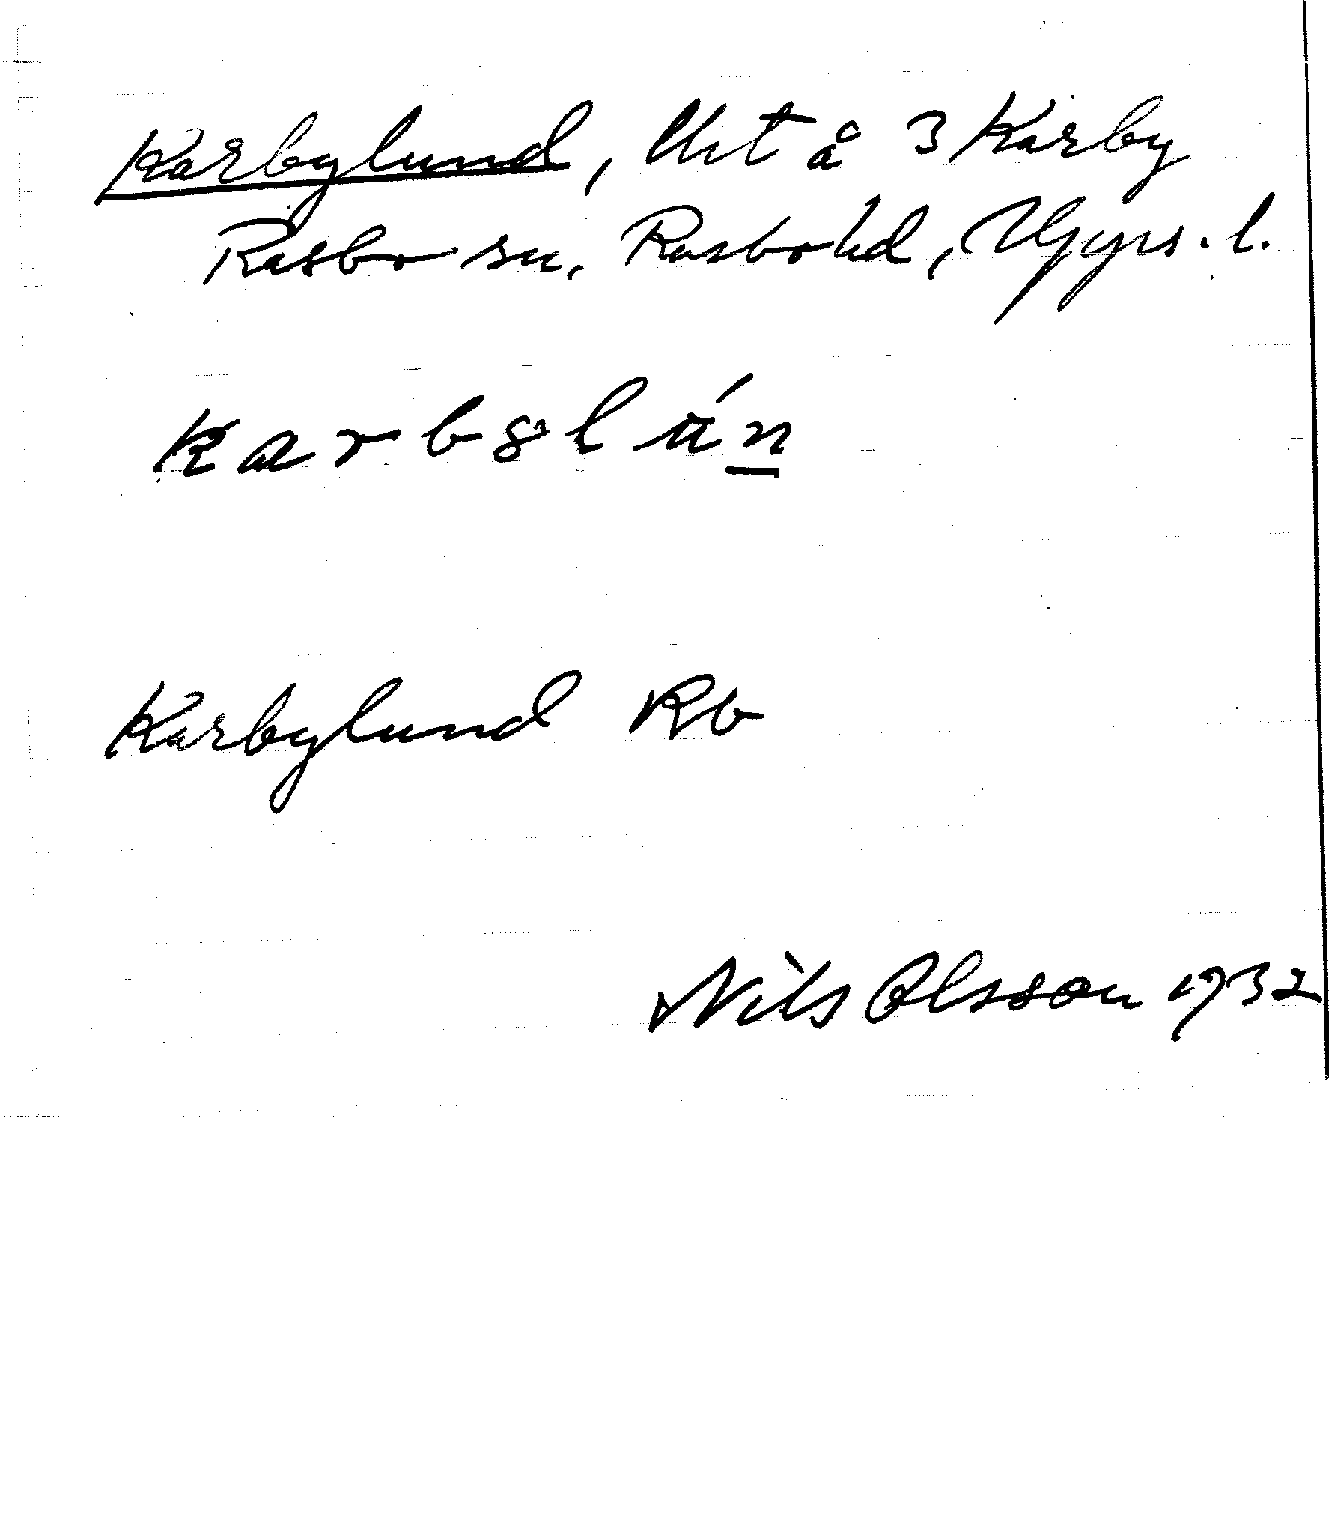 Karbylund, Utt å 3 Karby
Rasbo sn, Rasbo hd, Upps. l.
Karbylund Rb
Nils Olsson 1932